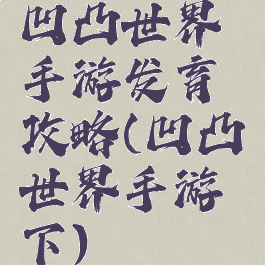 凹凸世界
手游发育
攻略(凹凸
世界手游
下)